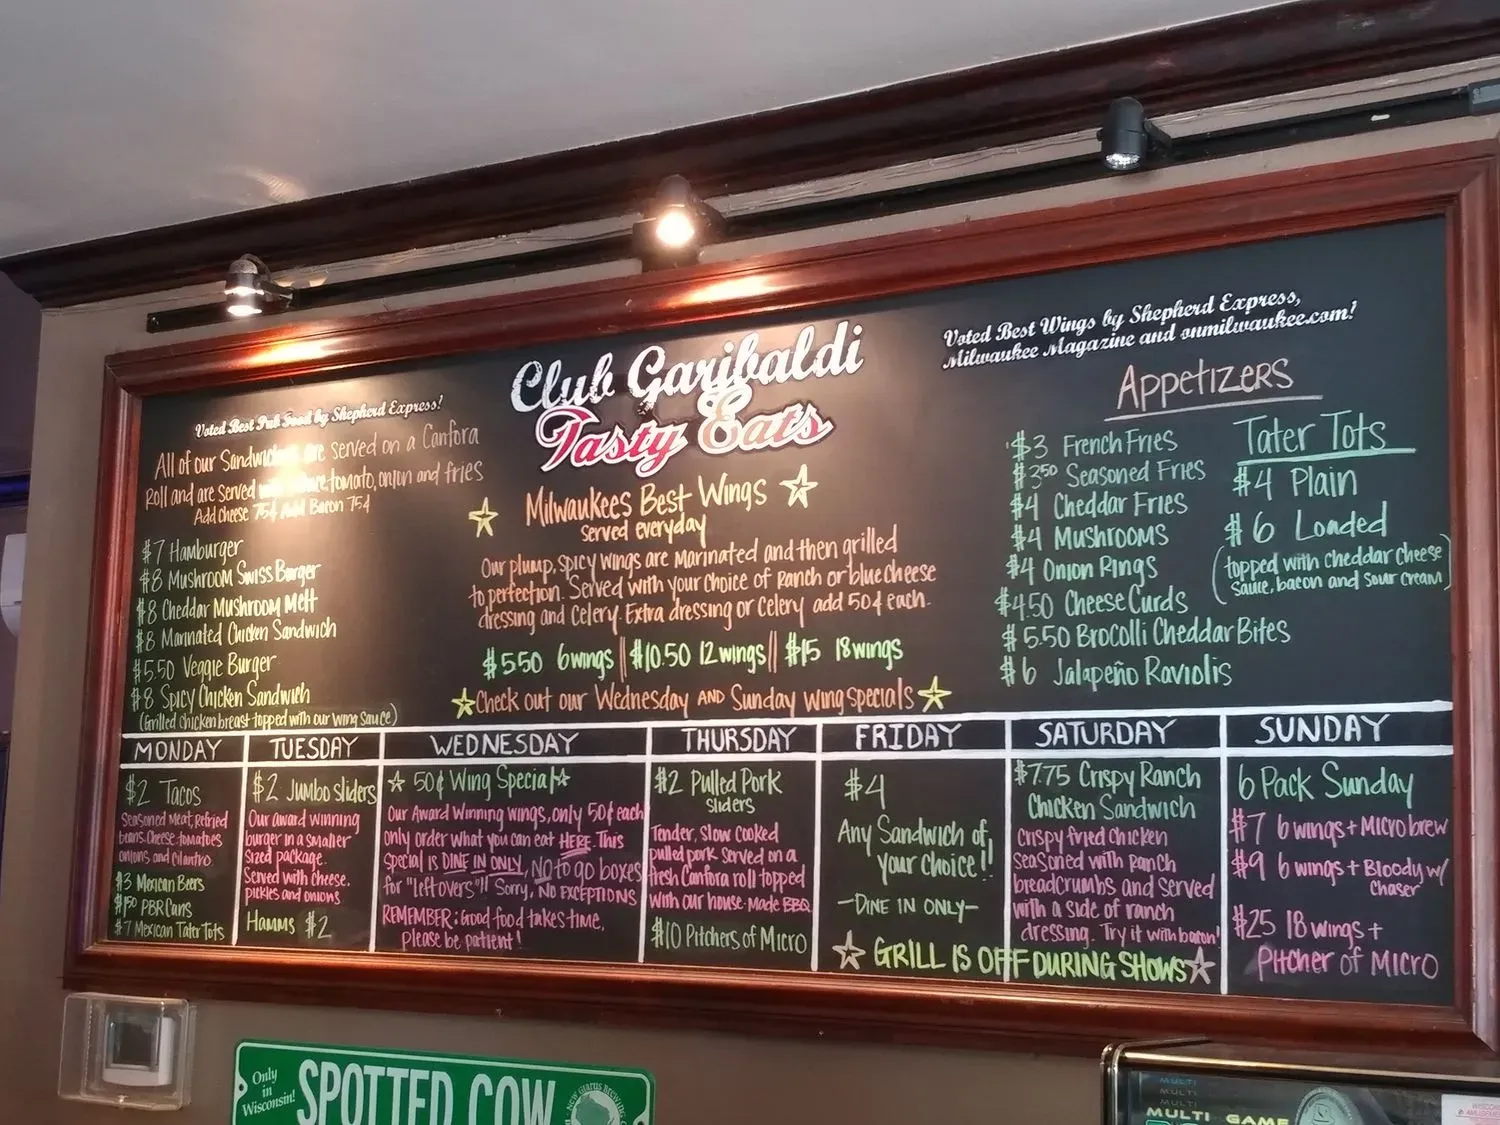 Voted Best Pub Food by Shepherd Express!
All of our Sandwiches are served on a Canfora
Roll and are served tomato, onion and fries
Add cheese 75¢ Add Bacon 75¢
$7 Hamburger
$8 Mushroom Swiss Burger
$8 Cheddar Mushroom Melt
$8 Marinated Chicken Sandwich
$5.50 Veggie Burger
$8 Spicy Chicken Sandwich
(Grilled chicken breast topped with our wing sauce)
Club Garibaldi
Tasty Eats
Milwaukees Best Wings
served everyday
Our plump, spicy wings are marinated and then grilled
to perfection. Served with your choice of ranch or blue cheese
dressing and celery. Extra dressing or celery add 50¢ each.
$5.50 6 wings || $10.50 12 wings || $15 18 wings
Check out our Wednesday AND Sunday wing specials
Voted Best Wings by Shepherd Express,
Milwaukee Magazine and onmilwaukee.com!
Appetizers
$3 French Fries
$3.50 Seasoned Fries
$4 Cheddar Fries
$4 Mushrooms
$4 Onion Rings
$4.50 Cheese Curds
$5.50 Brocolli Cheddar Bites
$6 Jalapeño Raviolis
Tater Tots
$4 Plain
$6 Loaded
(topped with cheddar cheese
sauce, bacon and sour cream)
MONDAY
$2 Tacos
Seasoned Meat, Refried
beans, Cheese, tomatoes
onions and cilantro.
$3 Mexican Beers
$1.50 PBR Cans
$7 Mexican Tater Tots
TUESDAY
$2 Jumbo sliders
Our award winning
burger in a smaller
sized package.
Served with cheese,
pickles and onions
Hamms $2
WEDNESDAY
50¢ Wing Special
Our Award Winning wings, only 50¢ each
only order what you can eat HERE. This
special is DINE IN ONLY, NO to go boxes
for "leftovers"!! Sorry, NO EXCEPTIONS
REMEMBER: Good food takes time,
please be patient!
THURSDAY
$2 Pulled Pork
sliders
Tender, slow cooked
pulled pork served on a
fresh Canfora roll topped
with our house-made BBQ
$10 Pitchers of Micro
FRIDAY
$4
Any Sandwich of
your choice!!
—DINE IN ONLY—
SATURDAY
$7.75 Crispy Ranch
Chicken Sandwich
Crispy fried chicken
seasoned with ranch
breadcrumbs and served
with a side of ranch
dressing. Try it with bacon!
GRILL IS OFF DURING SHOWS
SUNDAY
6 Pack Sunday
$7 6 wings + Microbrew
$9 6 wings + Bloody w/
chaser
$25 18 wings +
Pitcher of Micro
Only
in
Wisconsin!
SPOTTED COW
NEW GLARUS BREWING
MULTI
MULTI
MULTI GAME